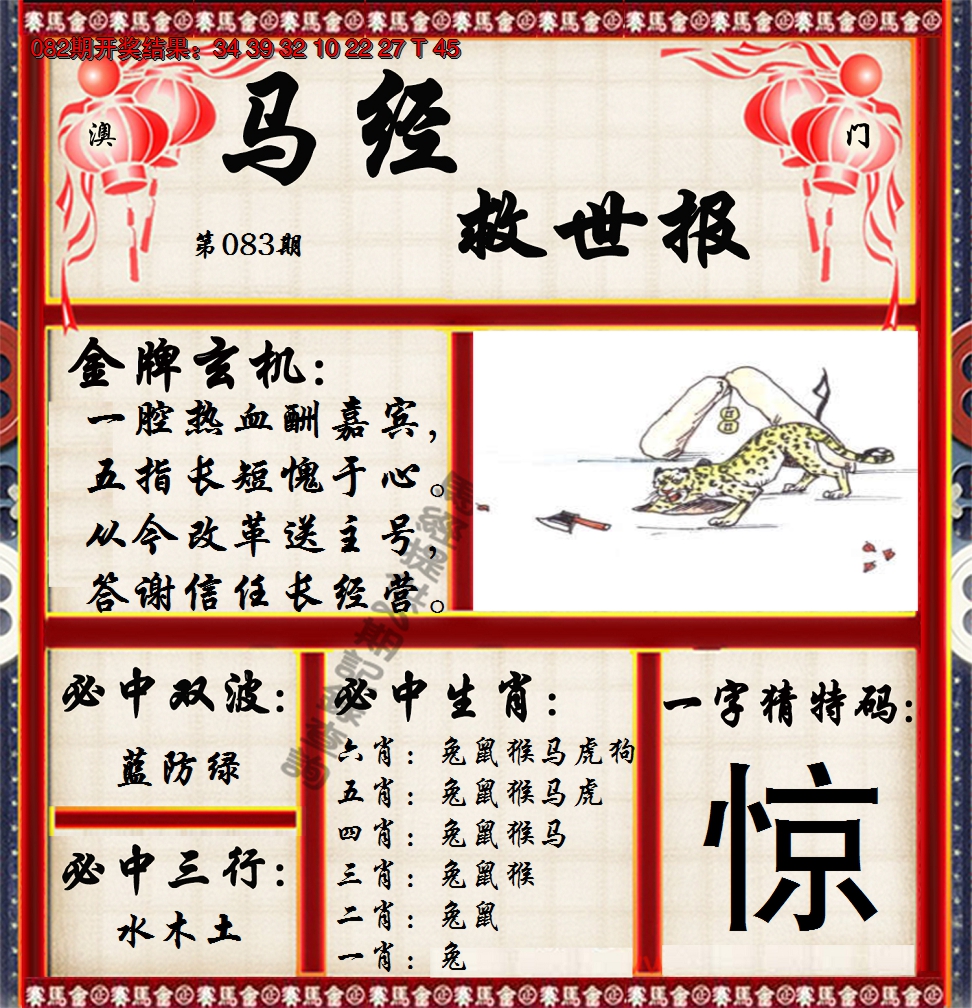 082期开奖结果：34 39 32 10 22 27 T 45
澳 门
马经
救世报
第083期
金牌玄机：
一腔热血酬嘉宾，
五指长短愧于心。
从今改革送主号，
答谢信任长经营。
必中双波：
蓝防绿
必中三行：
水木土
必中生肖：
六肖：兔鼠猴马虎狗
五肖：兔鼠猴马虎
四肖：兔鼠猴马
三肖：兔鼠猴
二肖：兔鼠
一肖：兔
一字猜特码：
惊